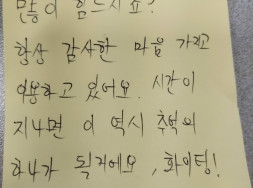 많이 힘드시죠?
항상 감사한 마음 가지고
이용하고 있어요. 시간이
지나면 이 역시 추억의
하나가 될거에요, 화이팅!